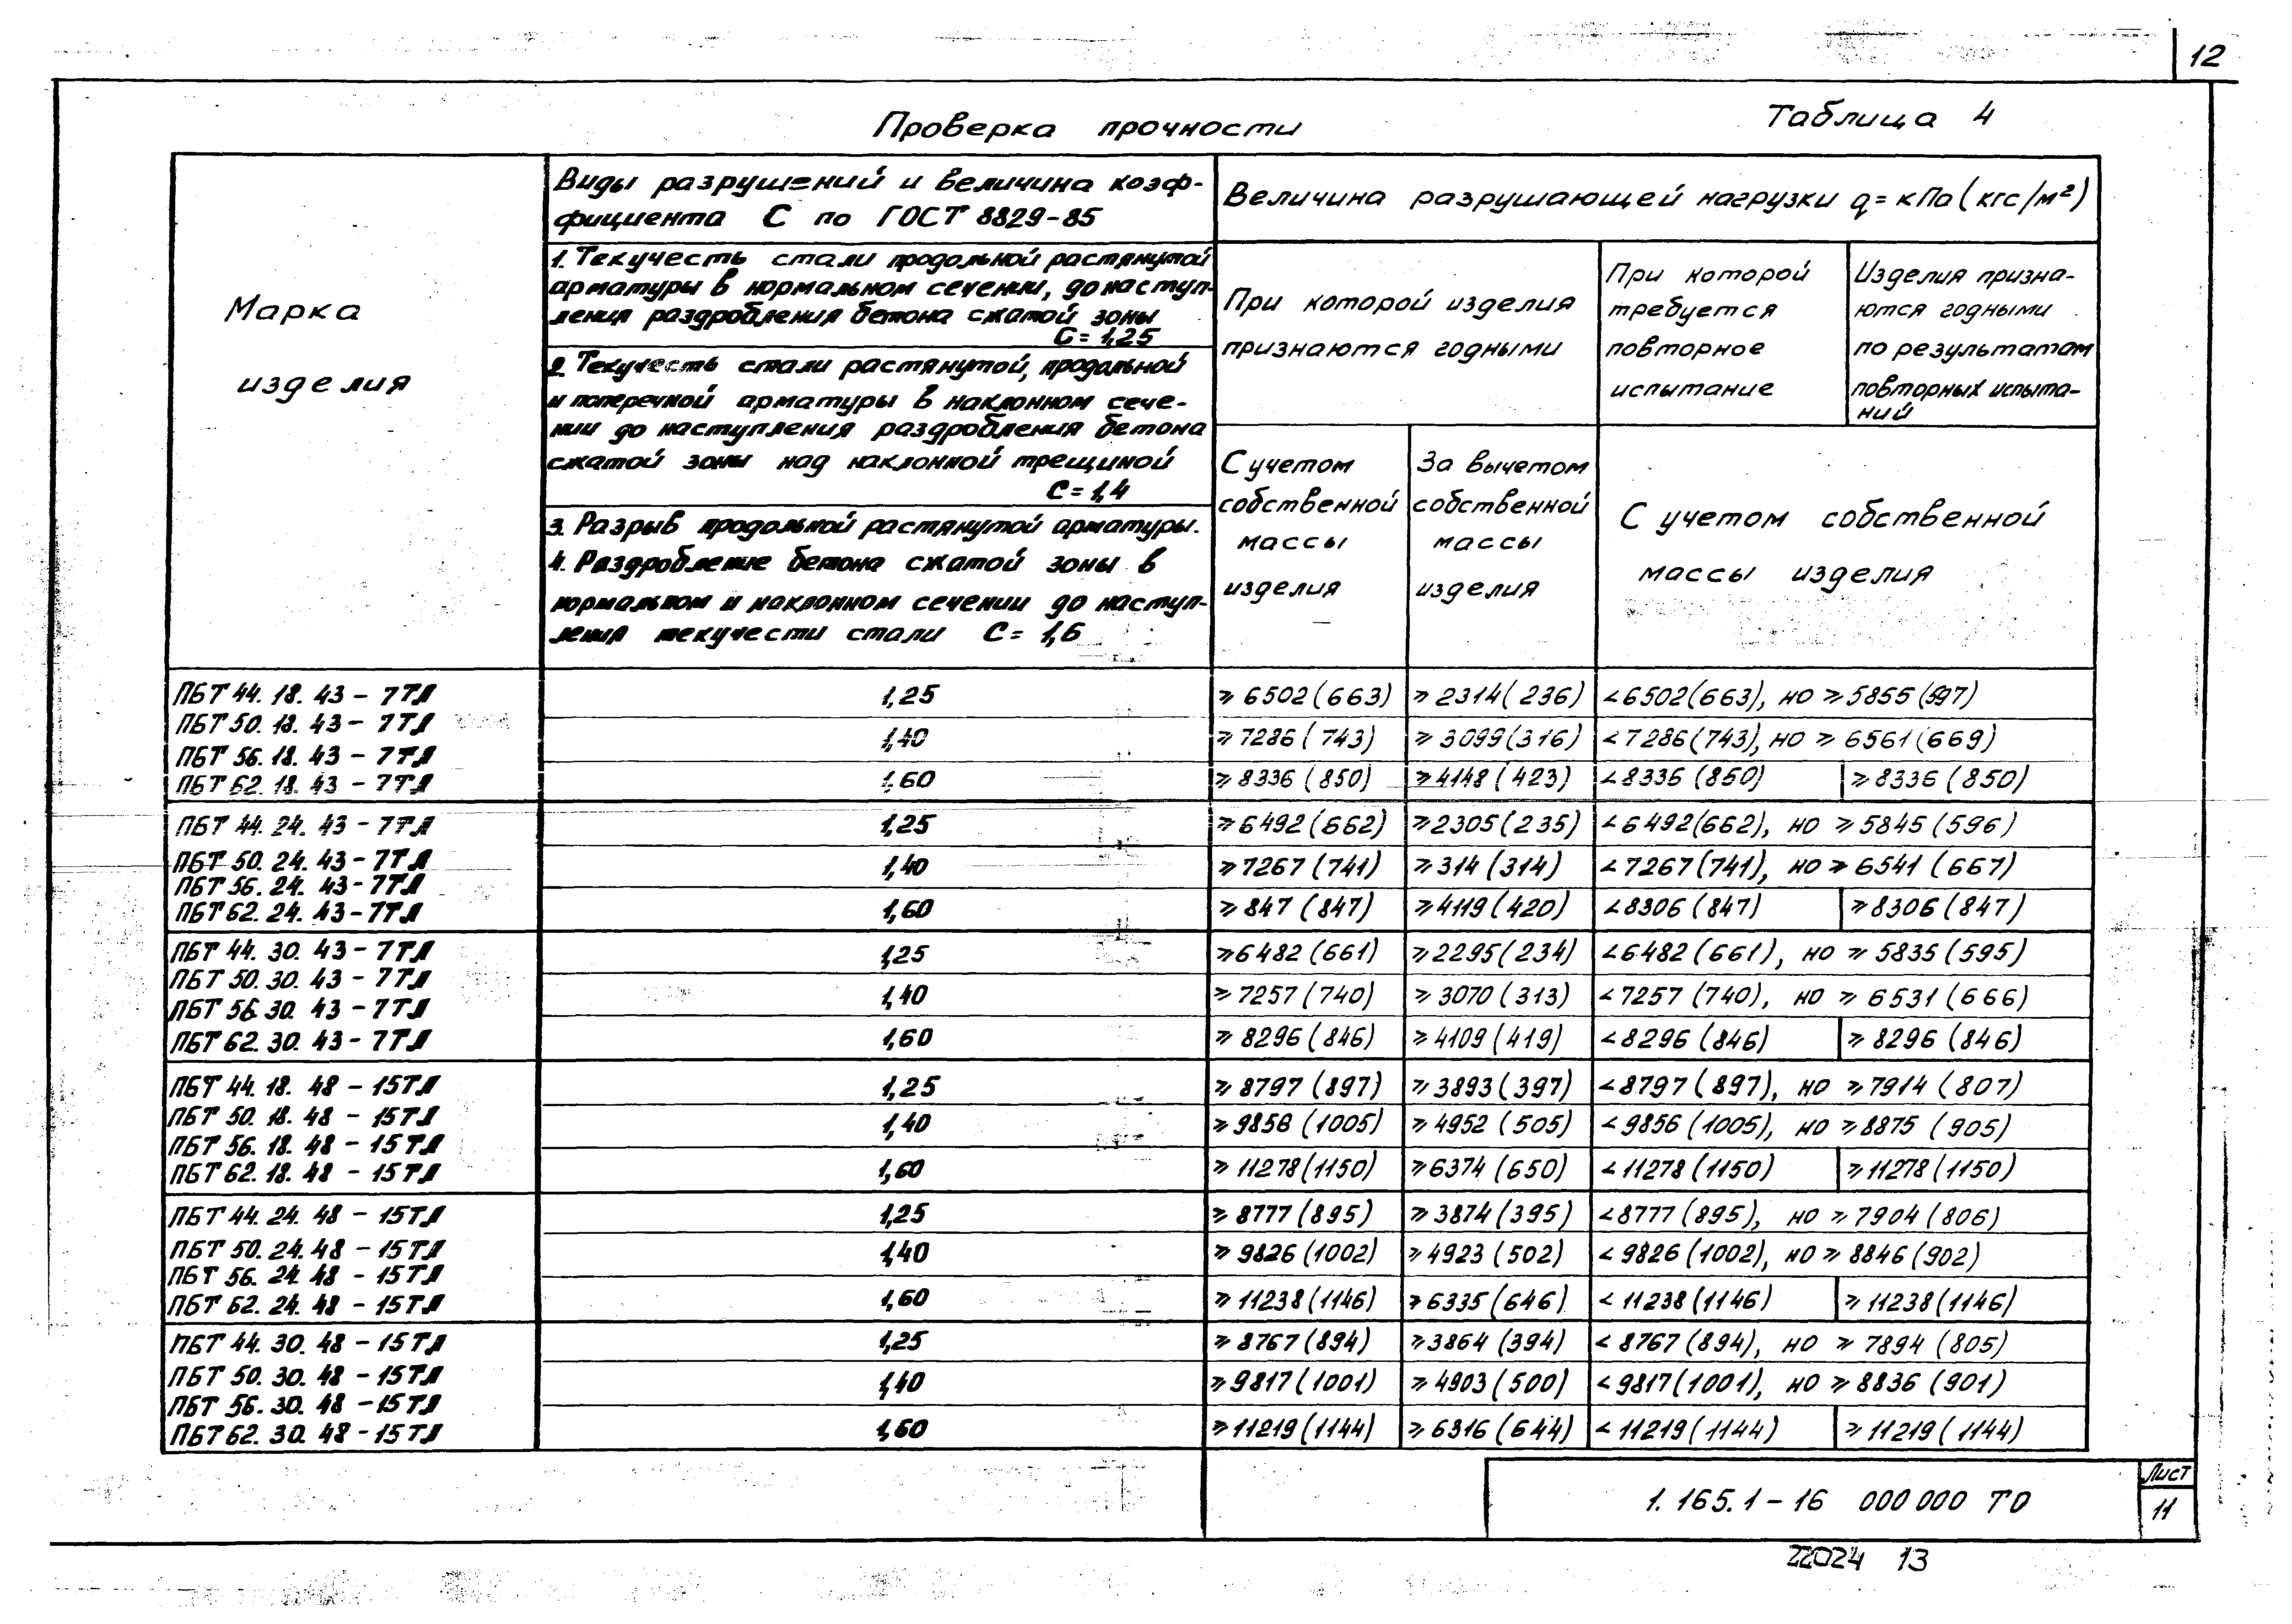 12
Проверка прочности
Таблица 4
Марка
изделия
Виды разрушений и величина коэф-
фициента С по ГОСТ 8829-85
1. Текучесть стали продольной растянутой
арматуры в нормальном сечении, до наступ-
ления раздробления бетона сжатой зоны
С = 1,25
2. Текучесть стали растянутой, продольной
и поперечной арматуры в наклонном сече-
нии до наступления раздробления бетона
сжатой зоны над наклонной трещиной
С = 1,4
3. Разрыв продольной растянутой арматуры.
4. Раздробление бетона сжатой зоны в
нормальном и наклонном сечении до наступ-
ления текучести стали С = 1,6
Величина разрушающей нагрузки q = кПа (кгс/м²)
При которой изделия
признаются годными
При которой
требуется
повторное
испытание
Изделия призна-
ются годными
по результатам
повторных испыта-
ний
С учетом
собственной
массы
изделия
За вычетом
собственной
массы
изделия
С учетом собственной
массы изделия
ПБТ 44.18.43 - 7ТЛ
ПБТ 50.18.43 - 7ТЛ
ПБТ 56.18.43 - 7ТЛ
ПБТ 62.18.43 - 7ТЛ
1,25 ≥ 6502 (663) ≥ 2314 (236) < 6502 (663), но ≥ 5855 (597)
1,40 ≥ 7286 (743) ≥ 3099 (316) < 7286 (743), но ≥ 6561 (669)
1,60 ≥ 8336 (850) ≥ 4148 (423) < 8336 (850) ≥ 8336 (850)
ПБТ 44.24.43 - 7ТЛ
ПБТ 50.24.43 - 7ТЛ
ПБТ 56.24.43 - 7ТЛ
ПБТ 62.24.43 - 7ТЛ
1,25 ≥ 6492 (662) ≥ 2305 (235) < 6492 (662), но ≥ 5845 (596)
1,40 ≥ 7267 (741) ≥ 314 (314) < 7267 (741), но ≥ 6541 (667)
1,60 ≥ 847 (847) ≥ 4119 (420) < 8306 (847) ≥ 8306 (847)
ПБТ 44.30.43 - 7ТЛ
ПБТ 50.30.43 - 7ТЛ
ПБТ 56.30.43 - 7ТЛ
ПБТ 62.30.43 - 7ТЛ
1,25 ≥ 6482 (661) ≥ 2295 (234) < 6482 (661), но ≥ 5835 (595)
1,40 ≥ 7257 (740) ≥ 3070 (313) < 7257 (740), но ≥ 6531 (666)
1,60 ≥ 8296 (846) ≥ 4109 (419) < 8296 (846) ≥ 8296 (846)
ПБТ 44.18.48 - 15ТЛ
ПБТ 50.18.48 - 15ТЛ
ПБТ 56.18.48 - 15ТЛ
ПБТ 62.18.48 - 15ТЛ
1,25 ≥ 8797 (897) ≥ 3893 (397) < 8797 (897), но ≥ 7914 (807)
1,40 ≥ 9856 (1005) ≥ 4952 (505) < 9856 (1005), но ≥ 8875 (905)
1,60 ≥ 11278 (1150) ≥ 6374 (650) < 11278 (1150) ≥ 11278 (1150)
ПБТ 44.24.48 - 15ТЛ
ПБТ 50.24.48 - 15ТЛ
ПБТ 56.24.48 - 15ТЛ
ПБТ 62.24.48 - 15ТЛ
1,25 ≥ 8777 (895) ≥ 3874 (395) < 8777 (895), но ≥ 7904 (806)
1,40 ≥ 9826 (1002) ≥ 4923 (502) < 9826 (1002), но ≥ 8846 (902)
1,60 ≥ 11238 (1146) > 6335 (646) < 11238 (1146) ≥ 11238 (1146)
ПБТ 44.30.48 - 15ТЛ
ПБТ 50.30.48 - 15ТЛ
ПБТ 56.30.48 - 15ТЛ
ПБТ 62.30.48 - 15ТЛ
1,25 ≥ 8767 (894) ≥ 3864 (394) < 8767 (894), но ≥ 7894 (805)
1,40 ≥ 9817 (1001) ≥ 4903 (500) < 9817 (1001), но ≥ 8836 (901)
1,60 ≥ 11219 (1144) ≥ 6316 (644) < 11219 (1144) ≥ 11219 (1144)
1.165.1-16 000 000 ТО
Лист
11
22024 13